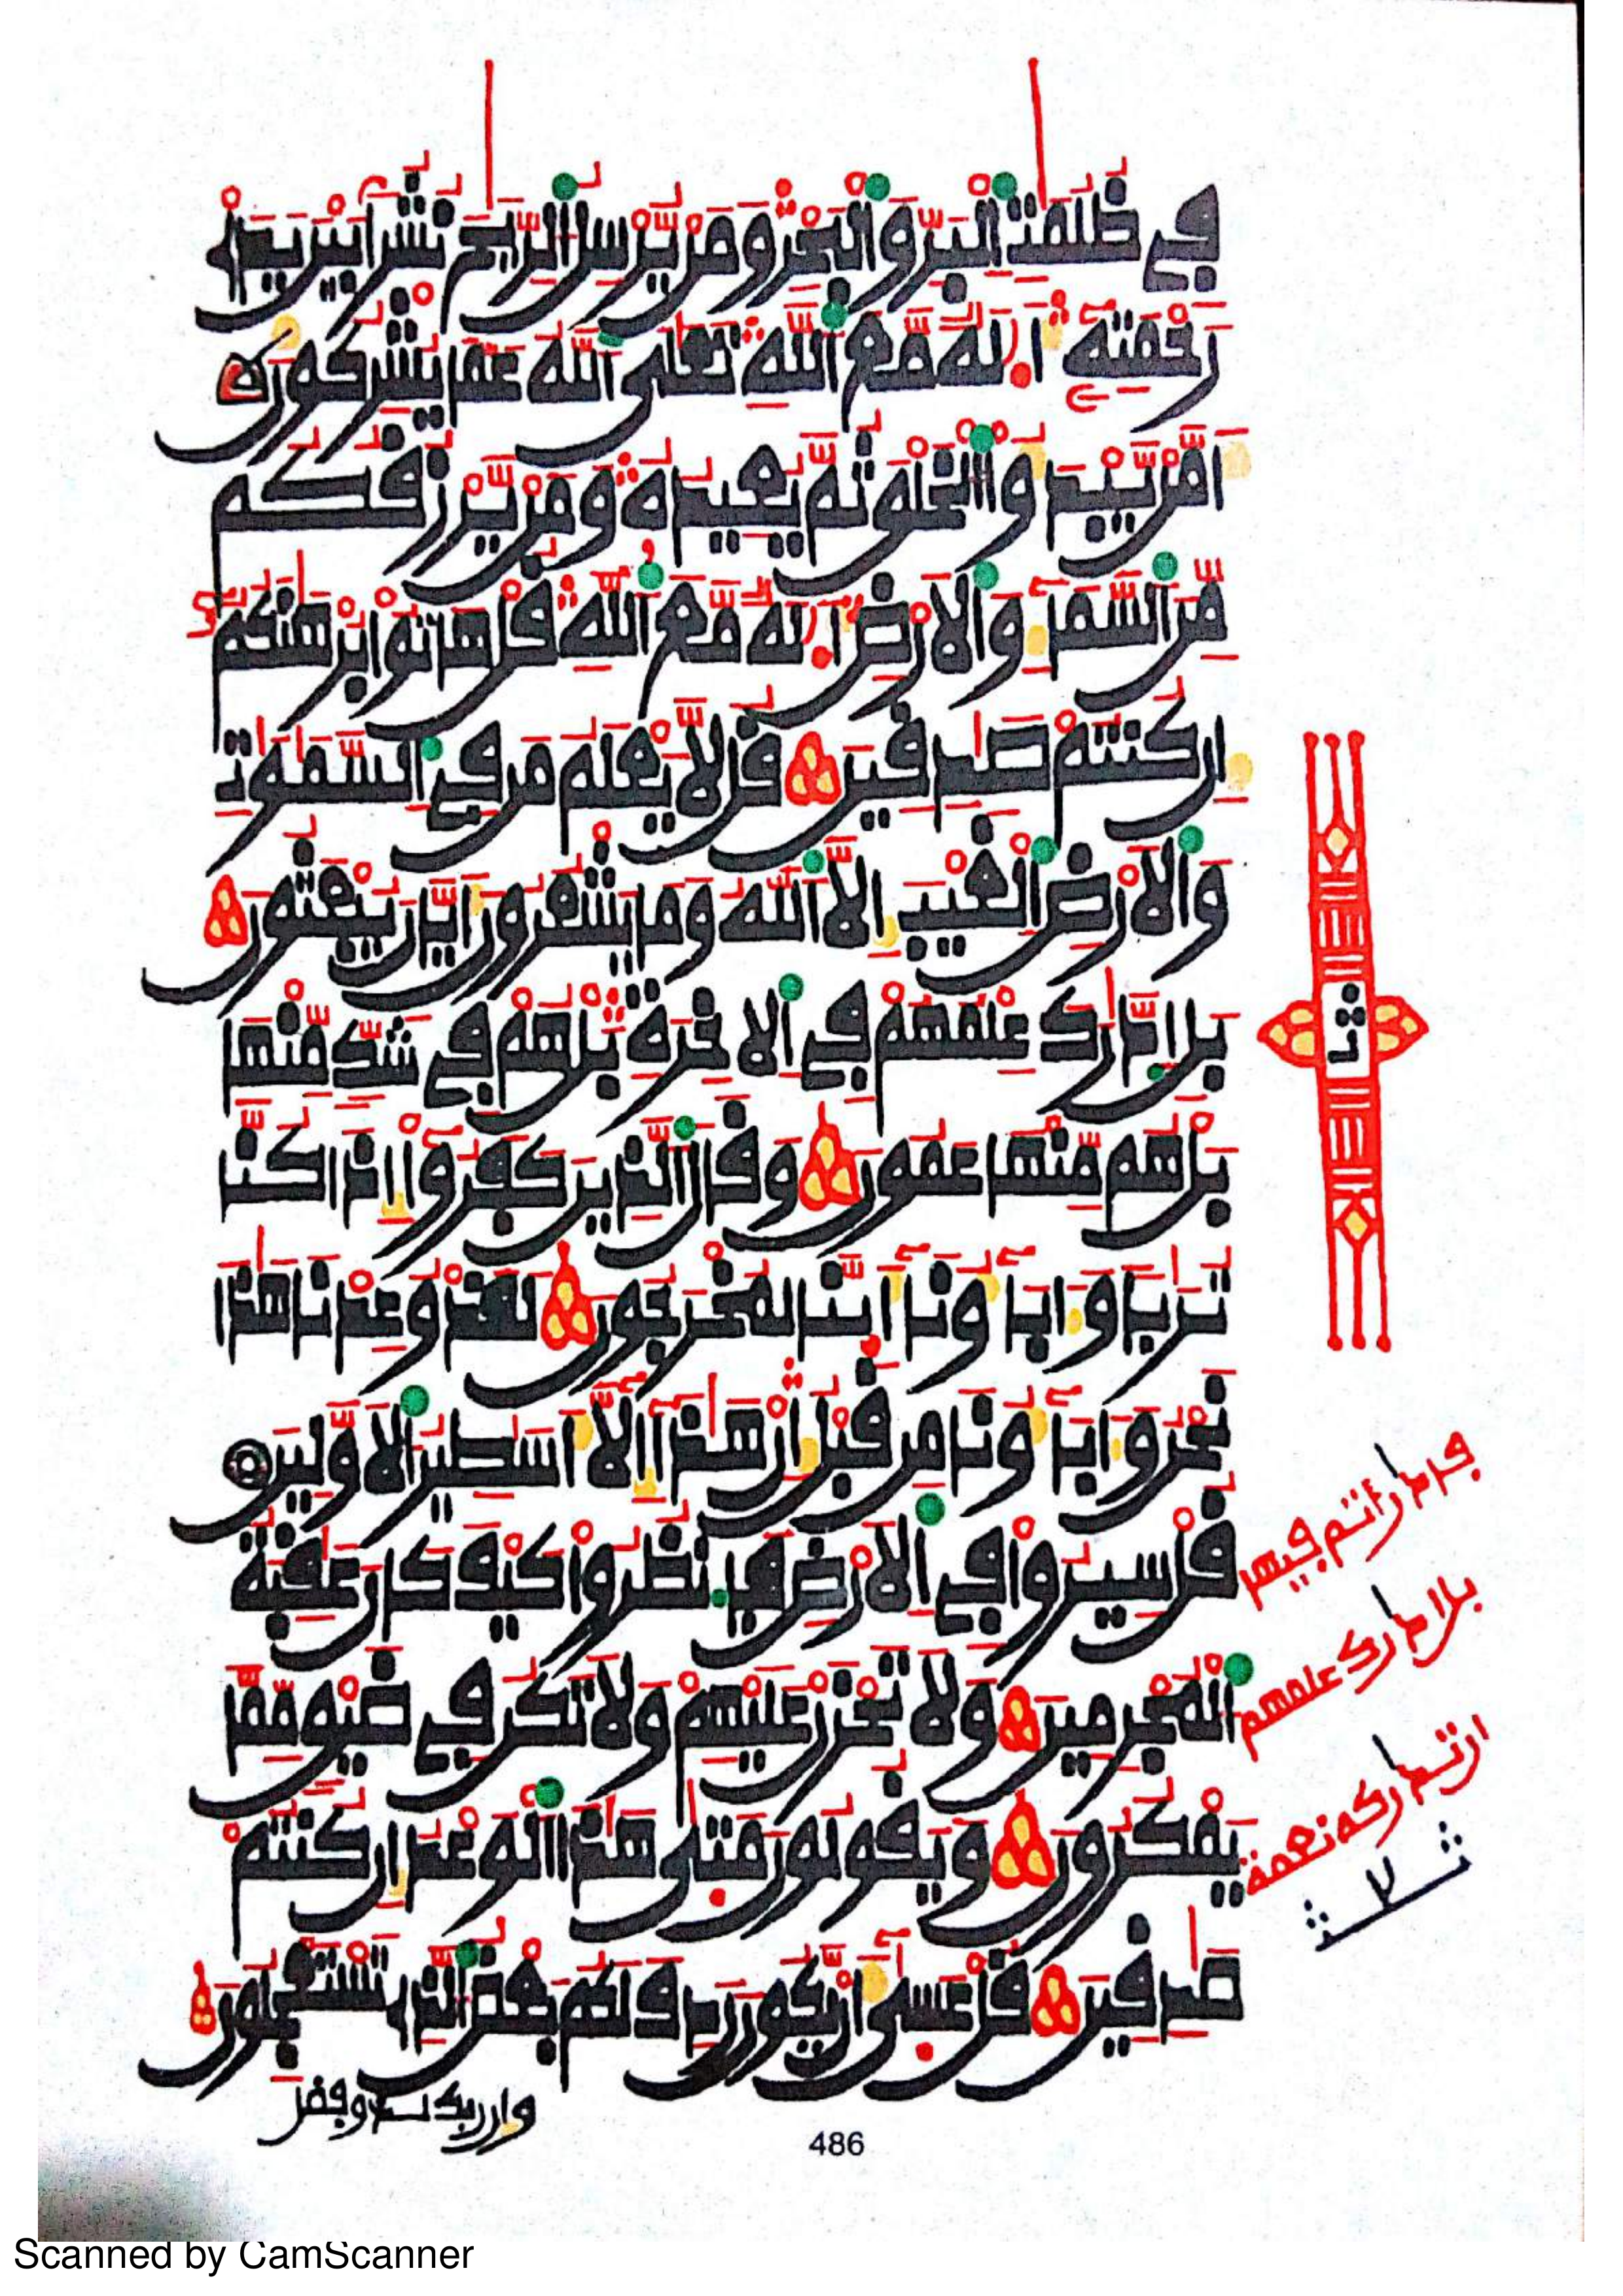 فِے ظُلُمَٰتِ اِ۬لْبَرِّ وَالْبَحْرِ وَمَنْ يُّرْسِلُ اُ۬لرِّيَٰحَ نُشُراَۢ بَيْنَ يَدَےْ
رَحْمَتِهِۦٓ أَ۟لَٰهٌ مَّعَ اَ۬للَّهِ تَعَٰلَي اَ۬للَّهُ عَمَّا يُشْرِكُونَ
أَمَّنْ يَّبْدَؤُاْ اُ۬لْخَلْقَ ثُمَّ يُعِيدُهُۥ وَمَنْ يَّرْزُقُكُم
مِّنَ اَ۬لسَّمَآءِ وَالَارْضِ أَ۟لَٰهٌ مَّعَ اَ۬للَّهِ قُلْ هَاتُواْ بُرْهَٰنَكُمُۥٓ
إِن كُنتُمْ صَٰدِقِينَ قُل لَّا يَعْلَمُ مَن فِے اِ۬لسَّمَٰوَٰتِ
وَالَارْضِ اِ۬لْغَيْبَ إِلَّا اَ۬للَّهُ وَمَا يَشْعُرُونَ أَيَّانَ يُبْعَثُونَ
بَلِ اِ۪دَّٰرَكَ عِلْمُهُمْ فِے اِ۬لَاخِرَةِ بَلْ هُمْ فِے شَكٍّ مِّنْهَا
بَلْ هُم مِّنْهَا عَمُونَ وَقَالَ اَ۬لذِينَ كَفَرُوٓاْ إِذَا كُنَّا
تُرَٰباٗ وَءَابَآؤُنَآ أَئِنَّا لَمُخْرَجُونَ لَقَدْ وُعِدْنَا هَٰذَا
نَحْنُ وَءَابَآؤُنَا مِن قَبْلُ إِنْ هَٰذَآ إِلَّآ أَسَٰطِيرُ اُ۬لَاوَّلِينَ
قُلْ سِيرُواْ فِے اِ۬لَارْضِ فَانظُرُواْ كَيْفَ كَانَ عَٰقِبَةُ
اُ۬لْمُجْرِمِينَ وَلَا تَحْزَنْ عَلَيْهِمْ وَلَا تَكُن فِے ضَيْقٍ مِّمَّا
يَمْكُرُونَ وَيَقُولُونَ مَتَيٰ هَٰذَا اَ۬لْوَعْدُ إِن كُنتُمْ
صَٰدِقِينَ قُلْ عَسَيٰٓ أَنْ يَّكُونَ رَدِفَ لَكُم بَعْضُ اُ۬لذِے تَسْتَعْجِلُونَ
وإن ربك لذو فضل
ثمن
486
Scanned by CamScanner